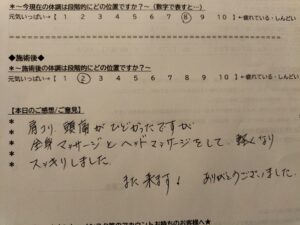 *〜今現在の体調は段階的にどの位置ですか?〜(数字で表すと…)
元気いっぱい→【 1 2 3 4 5 6 7 8 9 10 】←疲れている・しんどい
◆施術後◆
*〜施術後の体調は段階的にどの位置ですか?〜
元気いっぱい→【 1 2 3 4 5 6 7 8 9 10 】←疲れている・しんどい
【本日のご感想/ご意見】
* 肩コリ 頭痛がひどかったですが
* 全身マッサージとヘッドマッサージをして、軽くなり
* スッキリしました。
* また来ます! ありがとうございました。
アカウントお持ちのお客様へ★